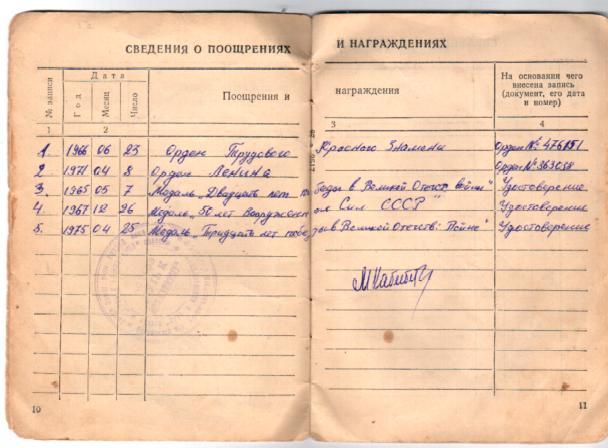 СВЕДЕНИЯ О ПООЩРЕНИЯХ И НАГРАЖДЕНИЯХ
№ записи
Дата
Год
Месяц
Число
Поощрения и награждения
На основании чего
внесена запись
(документ, его дата
и номер)
1 2 3 4
1. 1966 06 23 Орден Трудового Красного Знамени Орден №
2. 1971 04 8 Орден Ленина Орден № 363088
3. 1965 05 7 Медаль „Двадцать лет победы в Великой Отечест. войне" Удостоверение
4. 1967 12 26 Медаль „50 лет Вооружен ых Сил СССР" Удостоверение
5. 1975 04 25 Медаль „Тридцать лет победы в Великой Отечеств. Войне" Удостоверение
10
11